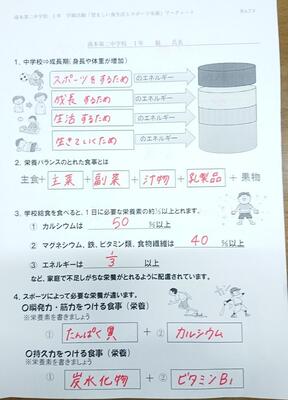 湯本第二中学校 1年 学級活動「望ましい食生活とスポーツ栄養」ワークシート
湯本第二中学校 1年 組 氏名
1. 中学校⇒成長期(身長や体重が増加)
スポーツをするため のエネルギー
成長するため のエネルギー
生活するため のエネルギー
生きていくため のエネルギー
2. 栄養バランスのとれた食事とは
主食+ 主菜 + 副菜 + 汁物 + 乳製品 + 果物
3. 学校給食を食べると、1日に必要な栄養素の約⅓以上とれます。
① カルシウムは 50 %以上
② マグネシウム、鉄、ビタミン類、食物繊維は 40 %以上
③ エネルギーは 1/3 以上
など、家庭で不足しがちな栄養がとれるように配慮されています。
4. スポーツによって必要な栄養が違います。
〇瞬発力・筋力をつける食事(栄養)
※栄養素を書きましょう
① たんぱく質 + ② カルシウム
〇持久力をつける食事(栄養)
※栄養素を書きましょう
① 炭水化物 + ② ビタミンB1